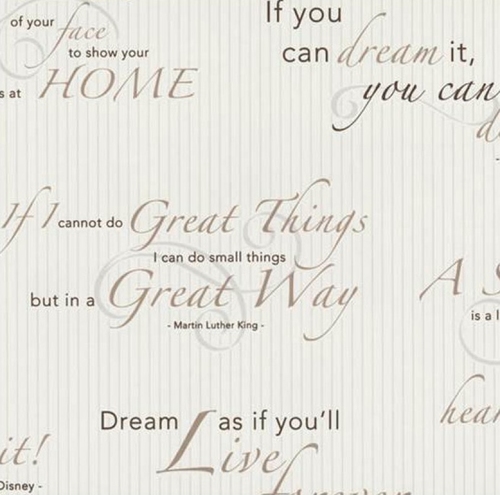 of your face
to show your
s at HOME
If you
can dream it,
you can
d
If I cannot do Great Things
I can do small things
but in a Great Way
- Martin Luther King -
A S
is a l
Dream as if you'll
Live
forever
hear
it!
Disney -